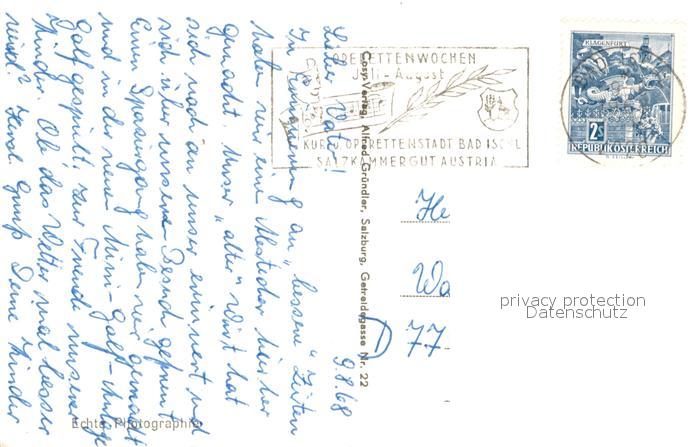 9.8.68
Lieber Vati!
In Erinnerung an "bessere" Zeiten
haben wir eine Abstecher hierher
gemacht. Unser "alter" Wirt hat
sich noch an unser erinnert und
sich über unseren Besuch gefreut.
Einen Spaziergang haben wir gemacht
und in der neuen Mini-Golf-Anlage
Golf gespielt, zur Freude unserer
Kinder. Ob das Wetter mal besser
wird? Herzl. Gruß Deine Kinder
Echte Photographie
Cosy-Verlag Alfred Gründler, Salzburg, Getreidegasse Nr. 22
OPERETTENWOCHEN
Juli - August
KUR U. OPERETTENSTADT BAD ISCHL
SALZKAMMERGUT AUSTRIA
KLAGENFURT
2S
REPUBLIK ÖSTERREICH
He
Wa
D 77
privacy protection
Datenschutz